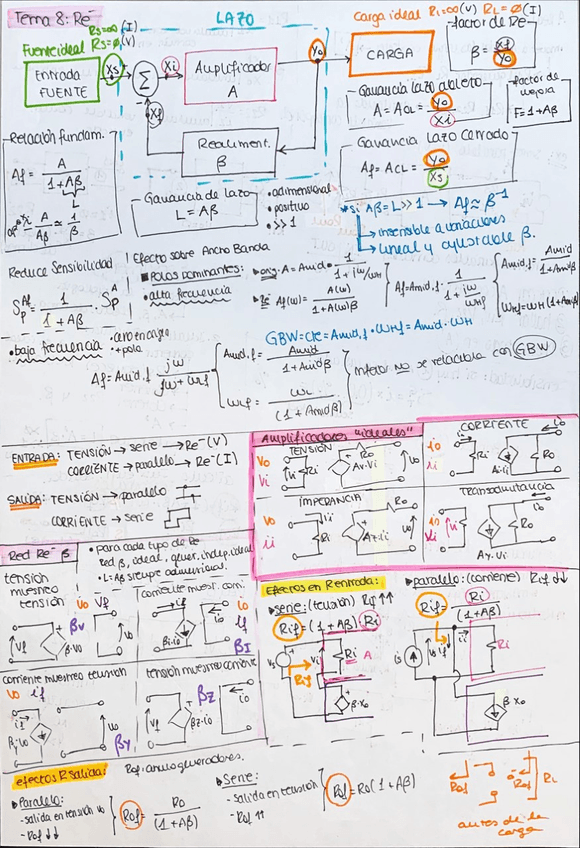 Tema 8: Re⁻
Rs=∞(I)
Rs=Ø(V)
Fuente ideal
LAZO
Carga ideal Ri=∞(V) RL=Ø(I)
Entrada
FUENTE
Xs
Σ
Xi
Amplificador
A
Yo
CARGA
factor de Re⁻
β = Xf/Yo
Xf
Realiment.
β
Ganancia lazo abierto
A = AOL = Yo/Xi
factor de mejora
F=1+Aβ
Ganancia Lazo Cerrado
Af = ACL = Yo/Xs
Relación fundam.
Af = A/(1+Aβ)
L
A/Aβ ≃ 1/β
Ganancia de lazo
L = Aβ
• adimensional
• positivo
• >> 1
* si Aβ=L>>1 → Af ≈ β⁻¹
→ insensible a variaciones
→ lineal y ajustable β.
Reduce Sensibilidad
S_p^Af = 1/(1+Aβ) · S_p^A
Efecto sobre Ancho Banda
▪ Polos dominantes:
• alta frecuencia
▸ orig: A=Amid· 1/(1+jω/ωH)
▸ Re⁻ Af(ω) = A(ω)/(1+A(ω)β)
Af=Amid,f · 1/(1+jω/ωHf)
Amid,f = Amid/(1+Amidβ)
ωHf=ωH(1+Amidβ)
GBW=cte=Amid,f·ωHf=Amid·ωH
• baja frecuencia
• cero en cero
+ polo
Af=Amid,f jω/(jω+ωLf)
Amid,f = Amid/(1+Amidβ)
ωLf = ωL/(1+Amidβ)
Inferior no se relaciona con GBW
ENTRADA: TENSIÓN → serie → Re⁻(V)
CORRIENTE → paralelo → Re⁻(I)
SALIDA: TENSIÓN → paralelo
CORRIENTE → serie
Amplificadores "ideales"
TENSIÓN
Vo
Vi
Vi
Ri
Av·Vi
Ro
Vo
CORRIENTE
io
ii
ii
Ri
Ai·ii
Ro
io
IMPEDANCIA
Vo
ii
ii
Ri
Az·ii
Ro
Vo
Transadmitancia
io
Vi
Vi
Ri
Ay·Vi
Ro
io
Red Re⁻ β
• para cada tipo de Re
red β, ideal, gener. indep. ideal
• L=Aβ siempre adimensional.
tensión
muestreo
tensión
Vo Vf
Vf
βv
β·Vo
Vo
corriente muest. corri.
if
βi·io
io
io
if
βI
corriente muestreo tensión
Vo if
if
βy·Vo
Vo
βy
tensión muestreo corriente
Vf
βz
βz·io
io
Efectos en R entrada:
▸ serie: (tensión) Rif ↑↑
Rif=(1+Aβ)·Ri
Vs
Vi
Rif
Ri
A
β·Xo
▸ paralelo: (corriente) Rif ↓↓
Rif = Ri/(1+Aβ)
is
if
ii
Ri
β·Xo
efectos R salida:
Rof: anulo generadores.
▸ Paralelo:
- salida en tensión Vo
- Rof ↓↓
Rof = Ro/(1+Aβ)
▸ Serie:
- salida en tensión
- Rof ↑↑
Rof=Ro(1+Aβ)
Rof
Rof
RL
antes de la
carga